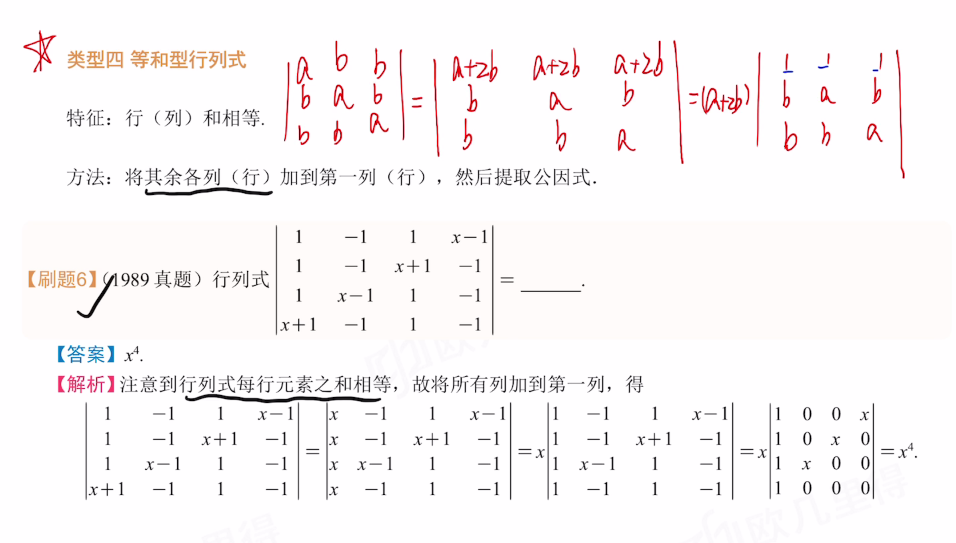 类型四 等和型行列式
|a b b|   |a+2b a+2b a+2b|        |1 1 1|
|b a b| = |b a b| =(a+2b) |b a b|
|b b a|   |b b a|        |b b a|
特征：行（列）和相等.
方法：将其余各列（行）加到第一列（行），然后提取公因式.
|1 −1 1 x−1|
|1 −1 x+1 −1|
【刷题6】（1989 真题）行列式 = ______.
|1 x−1 1 −1|
|x+1 −1 1 −1|
【答案】x⁴.
【解析】注意到行列式每行元素之和相等，故将所有列加到第一列，得
|1 −1 1 x−1| |x −1 1 x−1| |1 −1 1 x−1| |1 0 0 x|
|1 −1 x+1 −1| = |x −1 x+1 −1| = x |1 −1 x+1 −1| = x |1 0 x 0| = x⁴.
|1 x−1 1 −1| |x x−1 1 −1| |1 x−1 1 −1| |1 x 0 0|
|x+1 −1 1 −1| |x −1 1 −1| |1 −1 1 −1| |1 0 0 0|